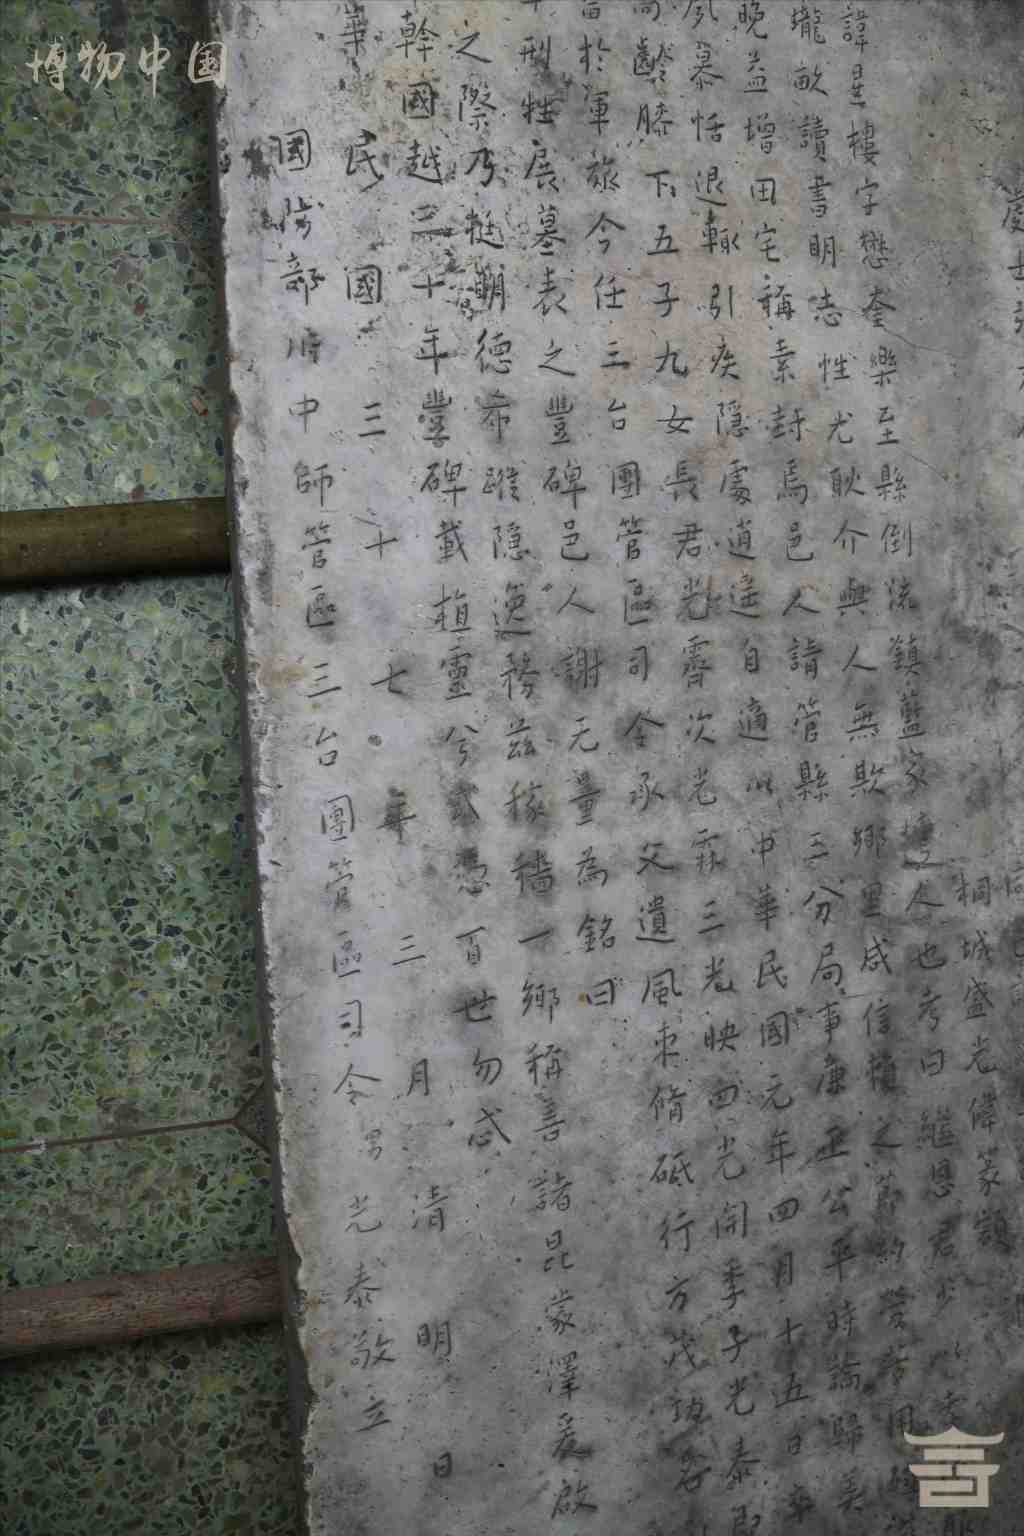 博物中国
處士
桐城盛光偉篆額
諱星樓字懋奎樂至縣倒流鎮藍家 人也考曰繼恩君少
壠畝讀書明志性光耿介與人無欺鄉里咸信賴之節約勞苦用
晚益增田宅稱素封焉邑人請管縣三分局事廉正公平時論歸美
夙慕恬退輙引疾隱處逍遥自適以中華民國元年四月十五日卒
齡膝下五子九女長君光霽次光霖三光映四光開季子光泰
於軍旅今任三台團管區司令承父遺風束脩砥行方茂功名
刑牲展墓表之豐碑邑人謝无量為銘曰
之際乃挺明德希蹤隱逸務茲稼穡一鄉稱善諸昆蒙澤爰啟
幹國越三十年豐碑載植靈兮式憑百世勿忒
民國三十七年三月清明日
國防部川中師管區三台團管區司令男光泰敬立